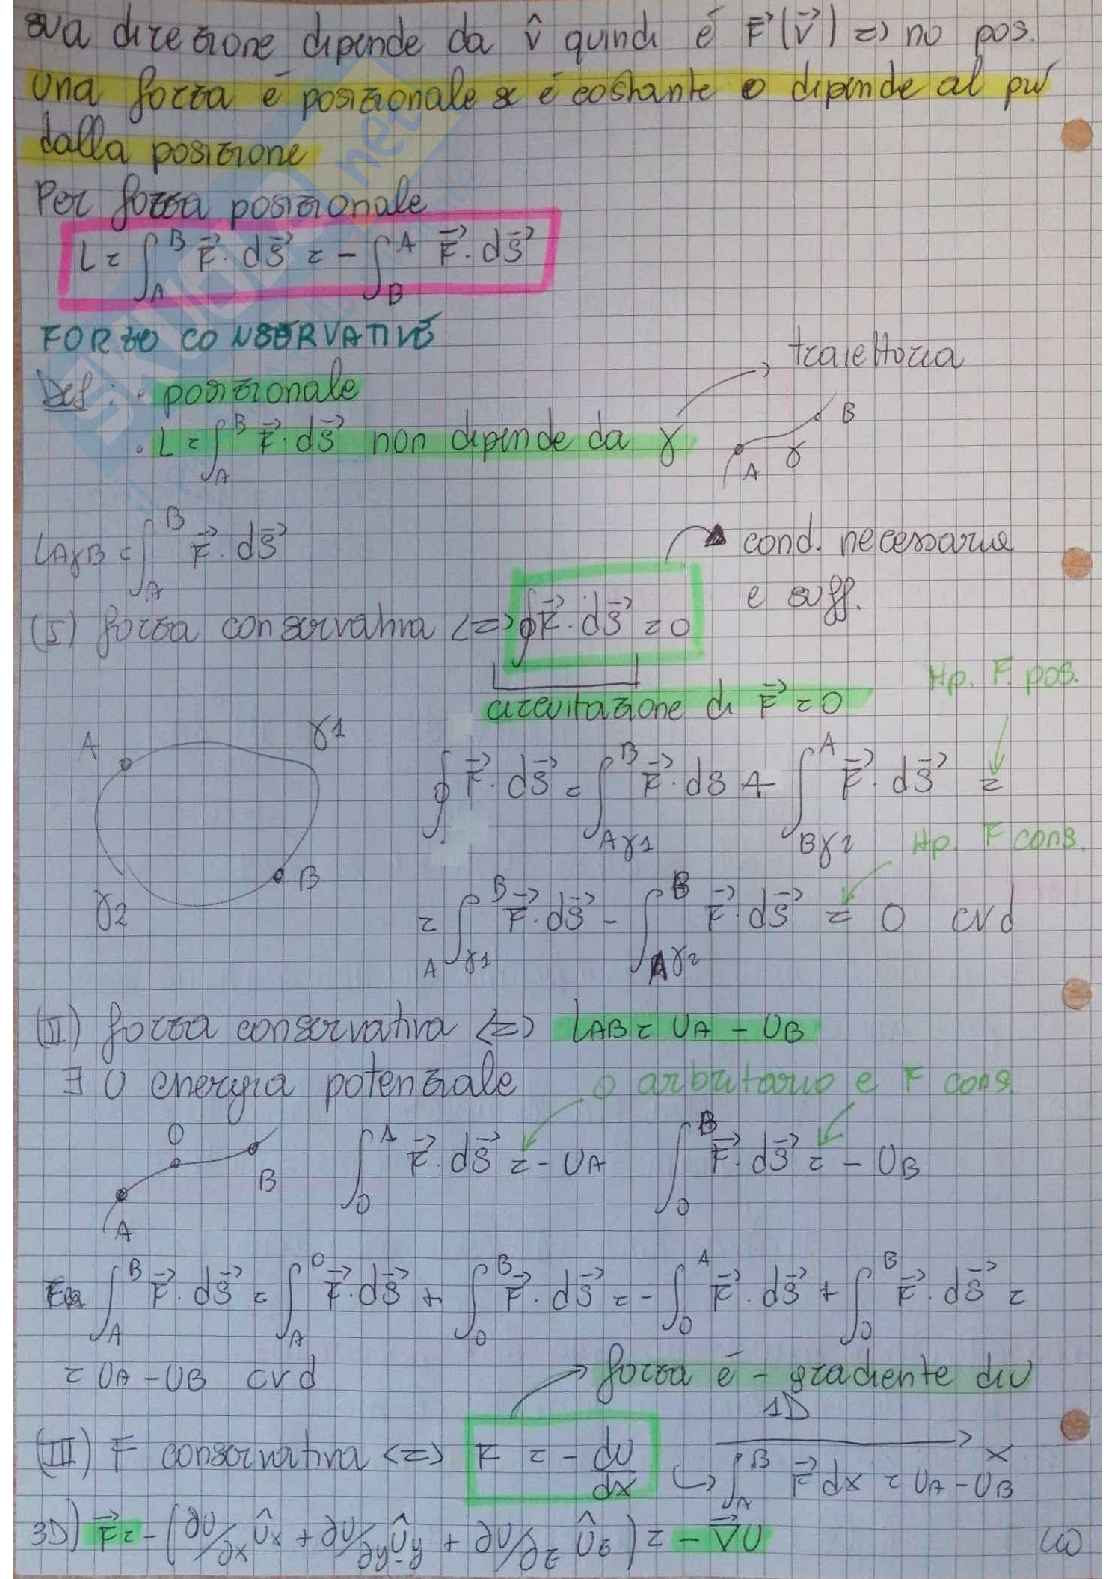 sua direzione dipende da v̂ quindi é F⃗(v⃗) => no pos.
Una forza é posizionale se é costante o dipende al piú
dalla posizione
Per forza posizionale
L = ∫_A^B F⃗ · dS⃗ = - ∫_B^A F⃗ · dS⃗
FORZE CONSERVATIVE
Def: · posizionale
traiettoria
· L = ∫_A^B F⃗ · dS⃗ non dipende da γ
A γ B
L_AγB = ∫_A^B F⃗ · dS⃗
cond. necessaria
e suff.
(I) forza conservativa <=> ∮F⃗ · dS⃗ = 0
circuitazione di F⃗ = 0
Hp. F. pos.
A γ1
B
γ2
∮ F⃗ · dS⃗ = ∫_Aγ1^B F⃗ · dS + ∫_Bγ2^A F⃗ · dS⃗ =
Hp. F cons.
= ∫_Aγ1^B F⃗ · dS⃗ - ∫_Aγ2^B F⃗ · dS⃗ = 0 cvd
(II) forza conservativa <=> L_AB = U_A - U_B
∃ U energia potenziale
O arbitrario e F cons.
O
B
A
∫_O^A F⃗ · dS⃗ = - U_A ∫_O^B F⃗ · dS⃗ = - U_B
∫_A^B F⃗ · dS⃗ = ∫_A^O F⃗ · dS⃗ + ∫_O^B F⃗ · dS⃗ = - ∫_O^A F⃗ · dS⃗ + ∫_O^B F⃗ · dS⃗ =
= U_A - U_B cvd
forza é - gradiente di U
1D
(III) F conservativa <=> F = - dU/dx
x
∫_A^B F⃗ dx = U_A - U_B
3D) F⃗ = - (∂U/∂x Ûx + ∂U/∂y Ûy + ∂U/∂z Ûz) = - ∇⃗U